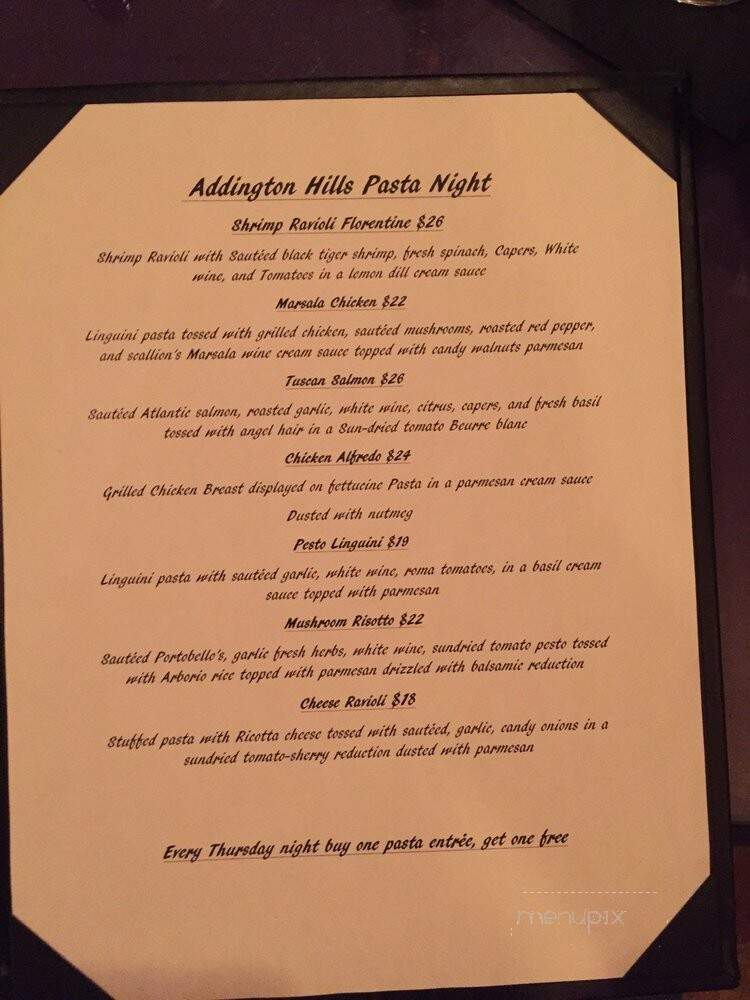 Addington Hills Pasta Night
Shrimp Ravioli Florentine $26
Shrimp Ravioli with Sautéed black tiger shrimp, fresh spinach, Capers, White
wine, and Tomatoes in a lemon dill cream sauce
Marsala Chicken $22
Linguini pasta tossed with grilled chicken, sautéed mushrooms, roasted red pepper,
and scallion's Marsala wine cream sauce topped with candy walnuts parmesan
Tuscan Salmon $26
Sautéed Atlantic salmon, roasted garlic, white wine, citrus, capers, and fresh basil
tossed with angel hair in a Sun-dried tomato Beurre blanc
Chicken Alfredo $24
Grilled Chicken Breast displayed on fettucine Pasta in a parmesan cream sauce
Dusted with nutmeg
Pesto Linguini $19
Linguini pasta with sautéed garlic, white wine, roma tomatoes, in a basil cream
sauce topped with parmesan
Mushroom Risotto $22
Sautéed Portobello's, garlic fresh herbs, white wine, sundried tomato pesto tossed
with Arborio rice topped with parmesan drizzled with balsamic reduction
Cheese Ravioli $18
Stuffed pasta with Ricotta cheese tossed with sautéed, garlic, candy onions in a
sundried tomato-sherry reduction dusted with parmesan
Every Thursday night buy one pasta entrée, get one free
menupix